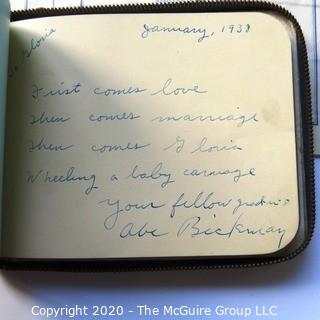 To Gloria
January, 1938
First comes love
Then comes marriage
Then comes Gloria
Wheeling a baby carriage
Your fellow
Abe Bickman
Copyright 2020 - The McGuire Group LLC